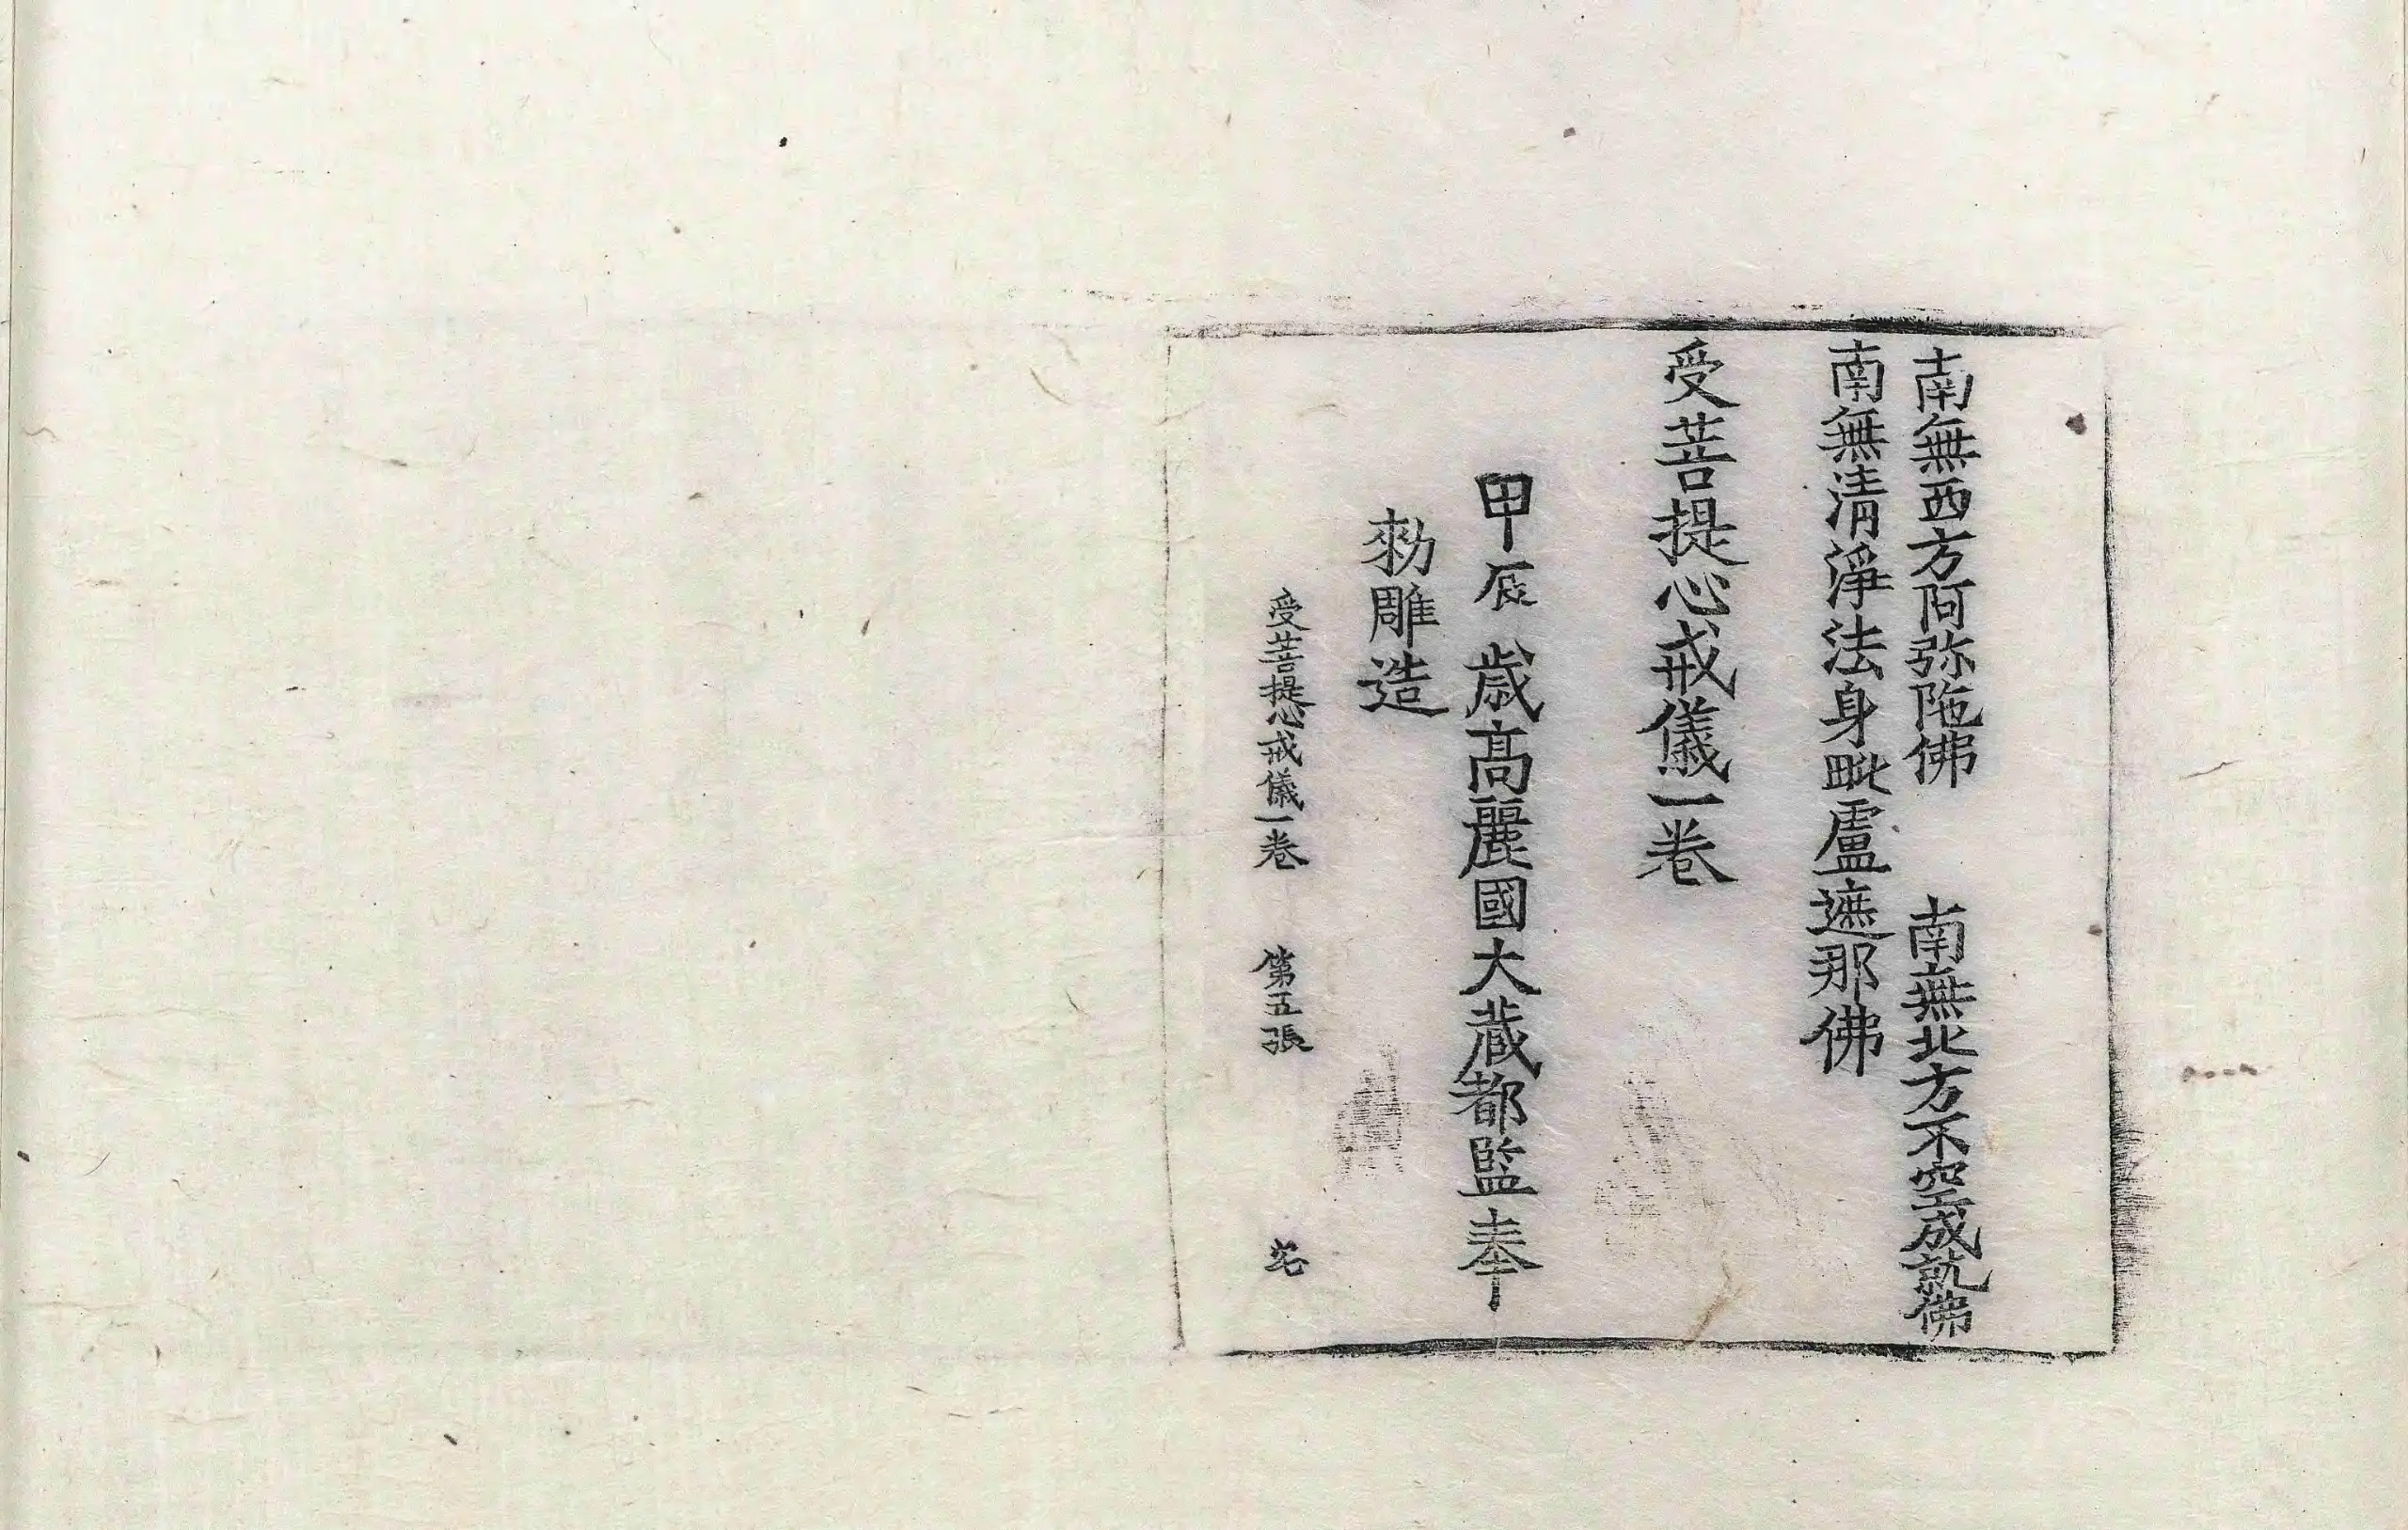 南無西方阿弥陁佛　南無北方不空成就佛
南無清淨法身毗盧遮那佛
受菩提心戒儀一卷
甲辰歳高麗國大藏都監奉
勑雕造
受菩提心戒儀一卷　第五張